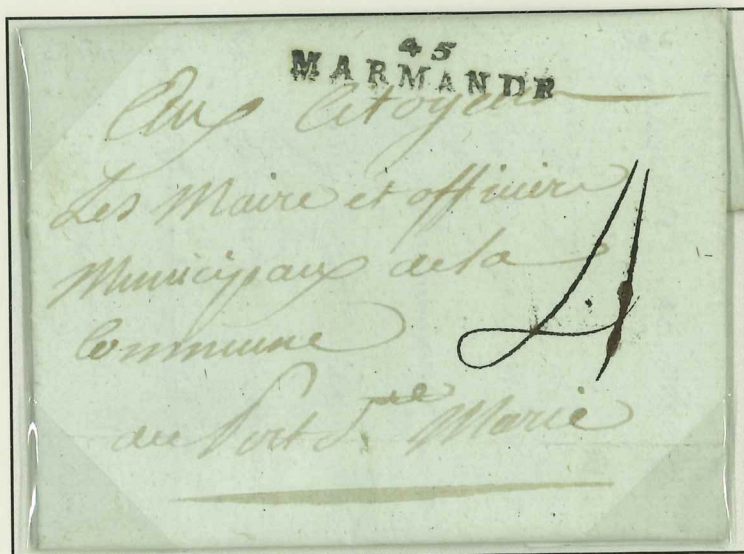 45
MARMANDE
Aux Citoyens
Les Maire et officiers
Municipaux de la
Commune
au Port Ste Marie
4